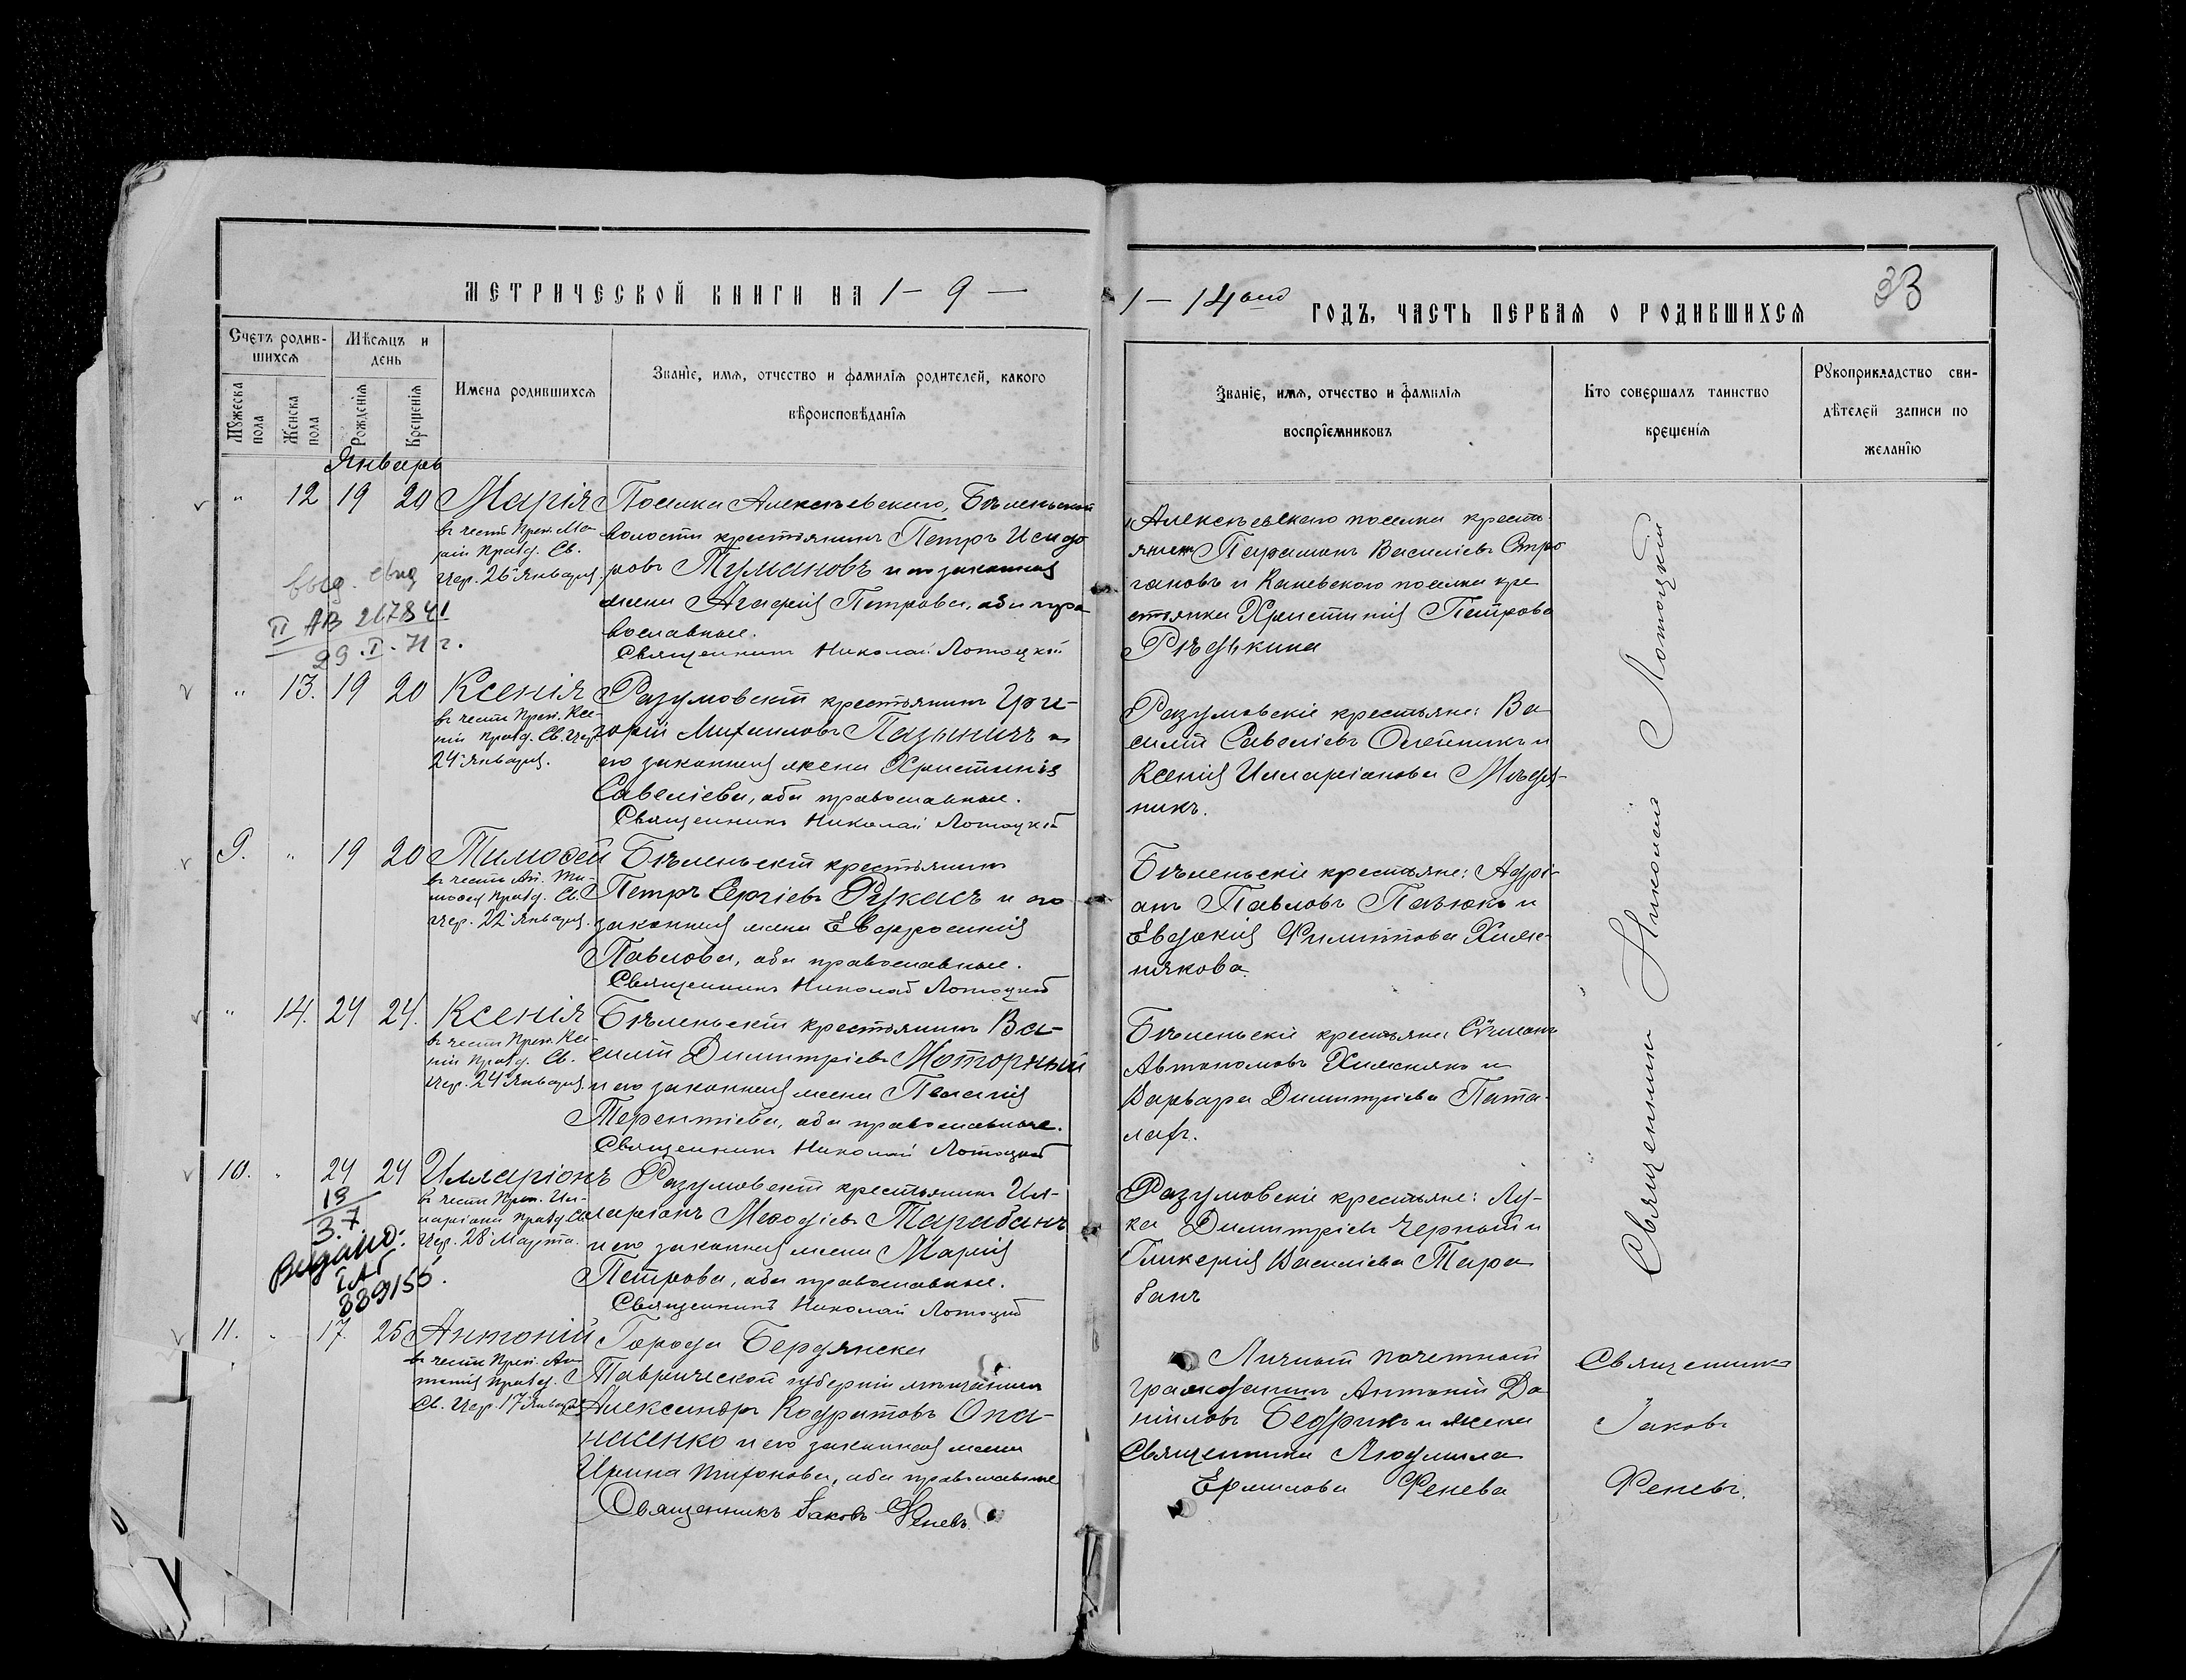 МЕТРИЧЕСКОЙ КНИГИ НА 1 – 9 –
1 – 14 ый ГОДЪ, ЧАСТЬ ПЕРВАЯ О РОДИВШИХСЯ
33
Счетъ родив-
шихся
Мѣсяцъ и
день
Мужеска пола
Женска пола
Рожденія
Крещенія
Имена родившихся
Званіе, имя, отчество и фамилія родителей, какого
вѣроисповѣданія
Званіе, имя, отчество и фамилія
воспріемниковъ
Кто совершалъ таинство
крещенія
Рукоприкладство сви-
дѣтелей записи по
желанію
Январь
" 12 19 20 Марія
в честь Преп. Ма-
ріи празд. Св.
Цер. 26 Января.
выд. свид
II АВ 267841
29.I.71 г.
Поселка Алексѣевскаго, Бѣленьской
волости крестьянинъ Петръ Исидо
ровъ Тумановъ и его законная
жена Агафія Петрова, оба пра
вославные.
Священникъ Николай Лотоцкій
Алексѣевскаго поселка кресть-
янинъ Парамонъ Василіевъ Стро
гановъ и Каневского поселка кре
стьянка Христинія Петрова
Рѣдькина
" 13. 19 20 Ксенія
в честь Преп. Ксе-
ніи празд. Св. Цер.
24 Января.
Разумовскій крестьянинъ Гри-
горій Михаиловъ Пазыничъ и
его законная жена Христинія
Савеліева, оба православные.
Священникъ Николай Лотоцкій
Разумовскіе крестьяне: Ва
силій Савеліевъ Олейникъ и
Ксенія Илларіонова Мѣдя-
никъ.
9. " 19 20 Тимофей
в честь Ап. Ти-
мофея празд. Св.
Цер. 22 Января.
Бѣленьскій крестьянинъ
Петръ Сергіевъ Рукасъ и его
законная жена Евфросинія
Павлова, оба православные.
Священникъ Николай Лотоцкій
Бѣленьскіе крестьяне: Адрі-
анъ Павловъ Павюкъ и
Евдокія Филиппова Химе-
някова.
" 14. 24 24. Ксенія
в честь Преп. Ксе-
ніи празд. Св.
Цер. 24 Января.
Бѣленьскій крестьянинъ Ва-
силій Димитріевъ Моторный
и его законная жена Пелагія
Терентіева, оба православные.
Священникъ Николай Лотоцкій
Бѣленьскіе крестьяне
Автономовъ и
Варвара Димитріева Пата-
лахъ.
10. " 24 24 Илларіонъ
в честь Преп. Ил-
ларіона празд. Св.
Цер. 28 Марта.
13
3.7
Видано:
ІАГ
889155.
Разумовскій крестьянинъ Ил-
ларіонъ Мефодіевъ Тарабанъ
и его законная жена Марія
Петрова, оба православные.
Священникъ Николай Лотоцкій
Разумовскіе крестьяне: Лу-
ка Димитріевъ Черный и
Гликерія Василіева Тара
банъ
Священникъ Николай Лотоцкій
11. " 17. 25 Антоній
в честь Преп. Ан-
тонія празд.
Св. Цер. 17 Января
Города Бердянска
Таврической губерніи мѣщанинъ
Александръ Кодратовъ Опа-
насенко и его законная жена
Ирина Тифонова, оба православные
Священникъ Іаковъ Феневъ.
Личный почетный
гражданинъ Антоній Да
ніиловъ Бедрикъ и жена
Священника Людмила
Ермилова Фенева
Священникъ
Іаковъ
Феневъ.